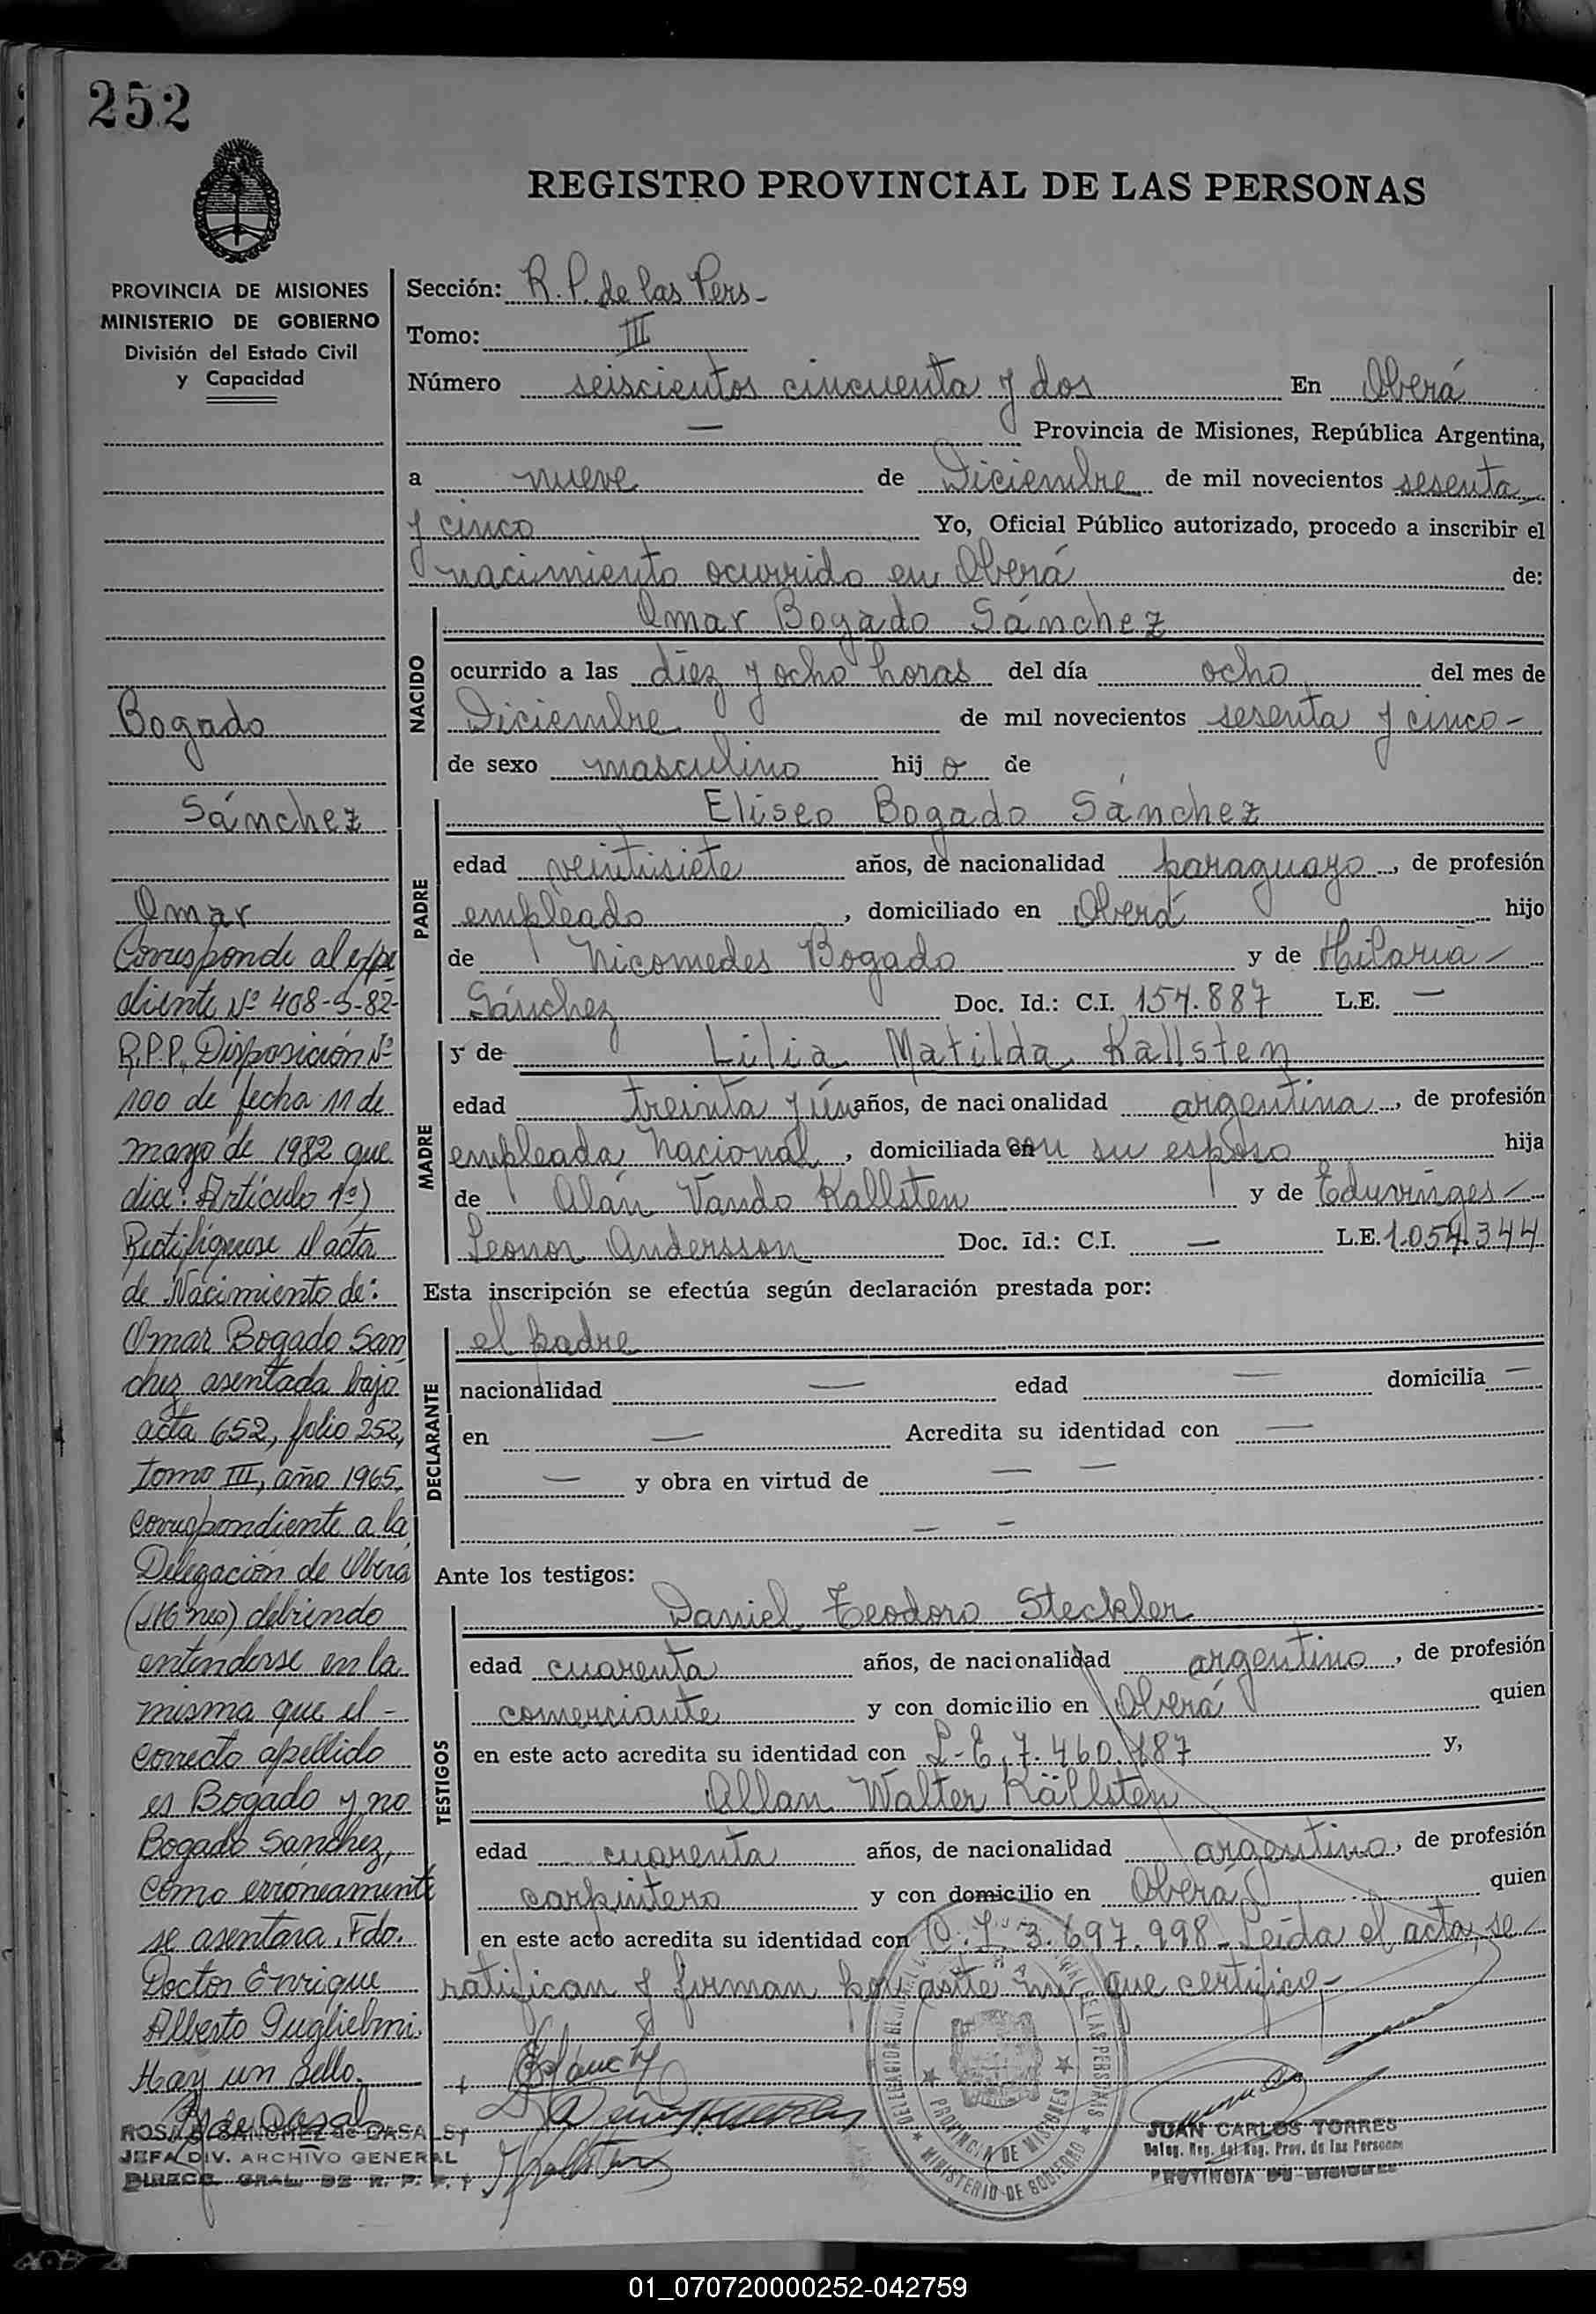 252
REGISTRO PROVINCIAL DE LAS PERSONAS
PROVINCIA DE MISIONES
MINISTERIO DE GOBIERNO
División del Estado Civil
y Capacidad
Bogado
Sánchez
Omar
Corresponde al expe
diente Nº 408-S-82-
R.P.P. Disposición Nº
100 de fecha 11 de
mayo de 1982 que
dice: Artículo 1º)
Rectifíquese el acta
de Nacimiento de:
Omar Bogado San
chez asentada bajo
acta 652, folio 252,
tomo III, año 1965,
correspondiente a la
Delegación de Oberá
(Mnes) debiendo
entenderse en la
misma que el -
correcto apellido
es Bogado y no
Bogado Sanchez,
como erróneamente
se asentara. Fdo.
Doctor Enrique
Alberto Guglielmi.
Hay un sello.
ROSA SANCHEZ de CASALS
JEFA DIV. ARCHIVO GENERAL
DIRECC. GRAL. DE R. P. P.
Sección: R.P. de las Pers-
Tomo: III
Número seiscientos cincuenta y dos En Oberá
— Provincia de Misiones, República Argentina,
a nueve de Diciembre de mil novecientos sesenta
y cinco Yo, Oficial Público autorizado, procedo a inscribir el
nacimiento ocurrido en Oberá de:
NACIDO
Omar Bogado Sánchez
ocurrido a las diez y ocho horas del día ocho del mes de
Diciembre de mil novecientos sesenta y cinco-
de sexo masculino hij o de
PADRE
Eliseo Bogado Sánchez
edad veintisiete años, de nacionalidad paraguayo, de profesión
empleado, domiciliado en Oberá hijo
de Nicomedes Bogado y de Hilaria-
Sánchez Doc. Id.: C.I. 154.887 L.E. —
MADRE
y de Lilia Matilda Kallsten
edad treinta y ún años, de nacionalidad argentina, de profesión
empleada Nacional, domiciliada con su esposo hija
de Alán Vando Kallsten y de Eduvinges-
Leonor Andersson Doc. Id.: C.I. — L.E. 1.054.344
Esta inscripción se efectúa según declaración prestada por:
DECLARANTE
el padre
nacionalidad — edad — domicilia —
en — Acredita su identidad con —
— y obra en virtud de — —
— —
Ante los testigos:
TESTIGOS
Daniel Teodoro Steckler
edad cuarenta años, de nacionalidad argentino, de profesión
comerciante y con domicilio en Oberá quien
en este acto acredita su identidad con L-E. 7.460.187 y,
Allan Walter Källsten
edad cuarenta años, de nacionalidad argentino, de profesión
carpintero y con domicilio en Oberá quien
en este acto acredita su identidad con C.I. 3.697.998- Leida el acta, se
ratifican y firman por ante mi que certifico-
PROVINCIA DE MISIONES
MINISTERIO DE GOBIERNO
JUAN CARLOS TORRES
Deleg. Reg. del Reg. Prov. de las Personas
PROVINCIA DE MISIONES
01_070720000252-042759